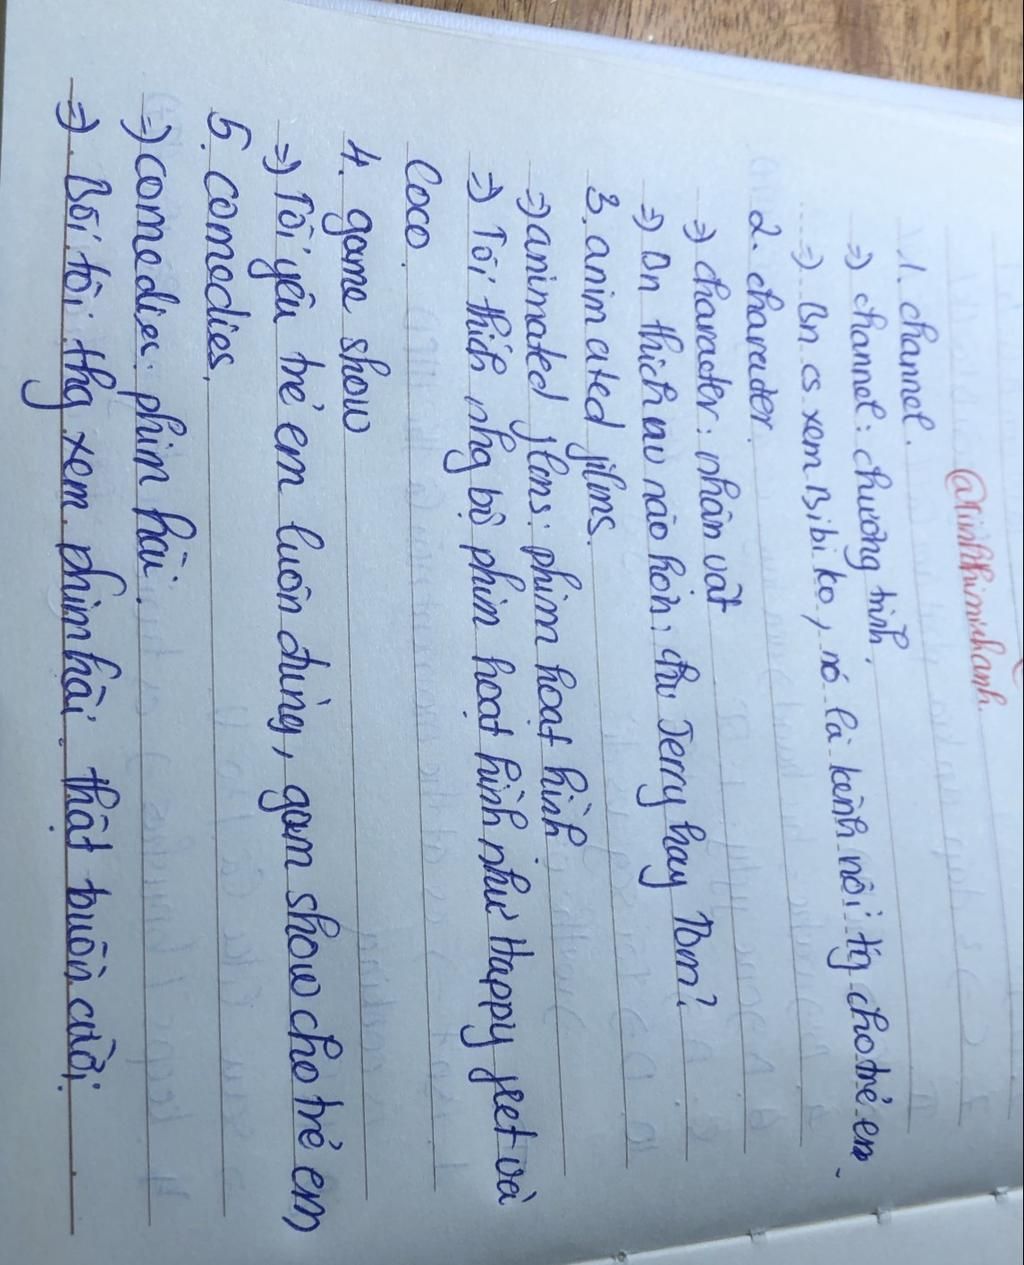 @trinhthimihanh.
1. channel.
=> channel: chương trình.
=> Bn cs xem Bibi ko, nó là kênh nổi tiếng cho trẻ em.
2. charader.
=> charader: nhân vật
=> Bn thích nv nào hơn: chú Jerry hay Tom?
3. animated films.
=> animated films: phim hoạt hình.
=> Tôi thích nhg bộ phim hoạt hình như Happy feet và
Coco.
4. game show
=> Tôi yêu trẻ em luôn đúng, gam show cho trẻ em
5. comedies.
=> comedies: phim hài.
=> Bối tôi thg xem phim hài. thật buồn cười.